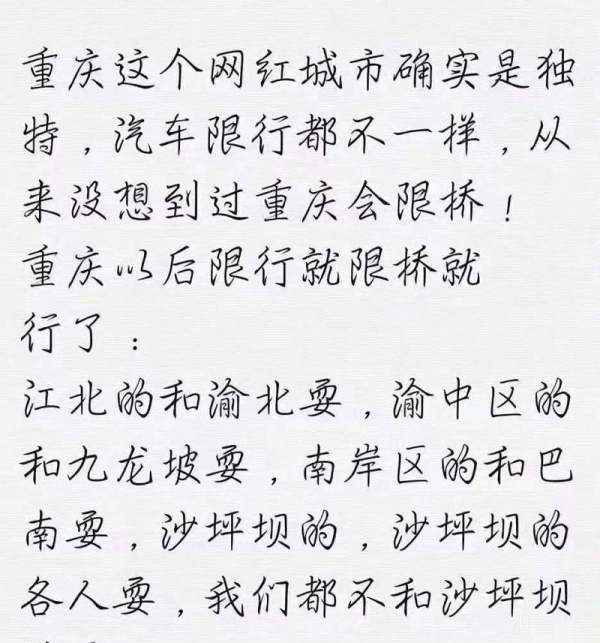 重庆这个网红城市确实是独
特，汽车限行都不一样，从
来没想到过重庆会限桥！
重庆以后限行就限桥就
行了：
江北的和渝北耍，渝中区的
和九龙坡耍，南岸区的和巴
南耍，沙坪坝的，沙坪坝的
各人耍，我们都不和沙坪坝